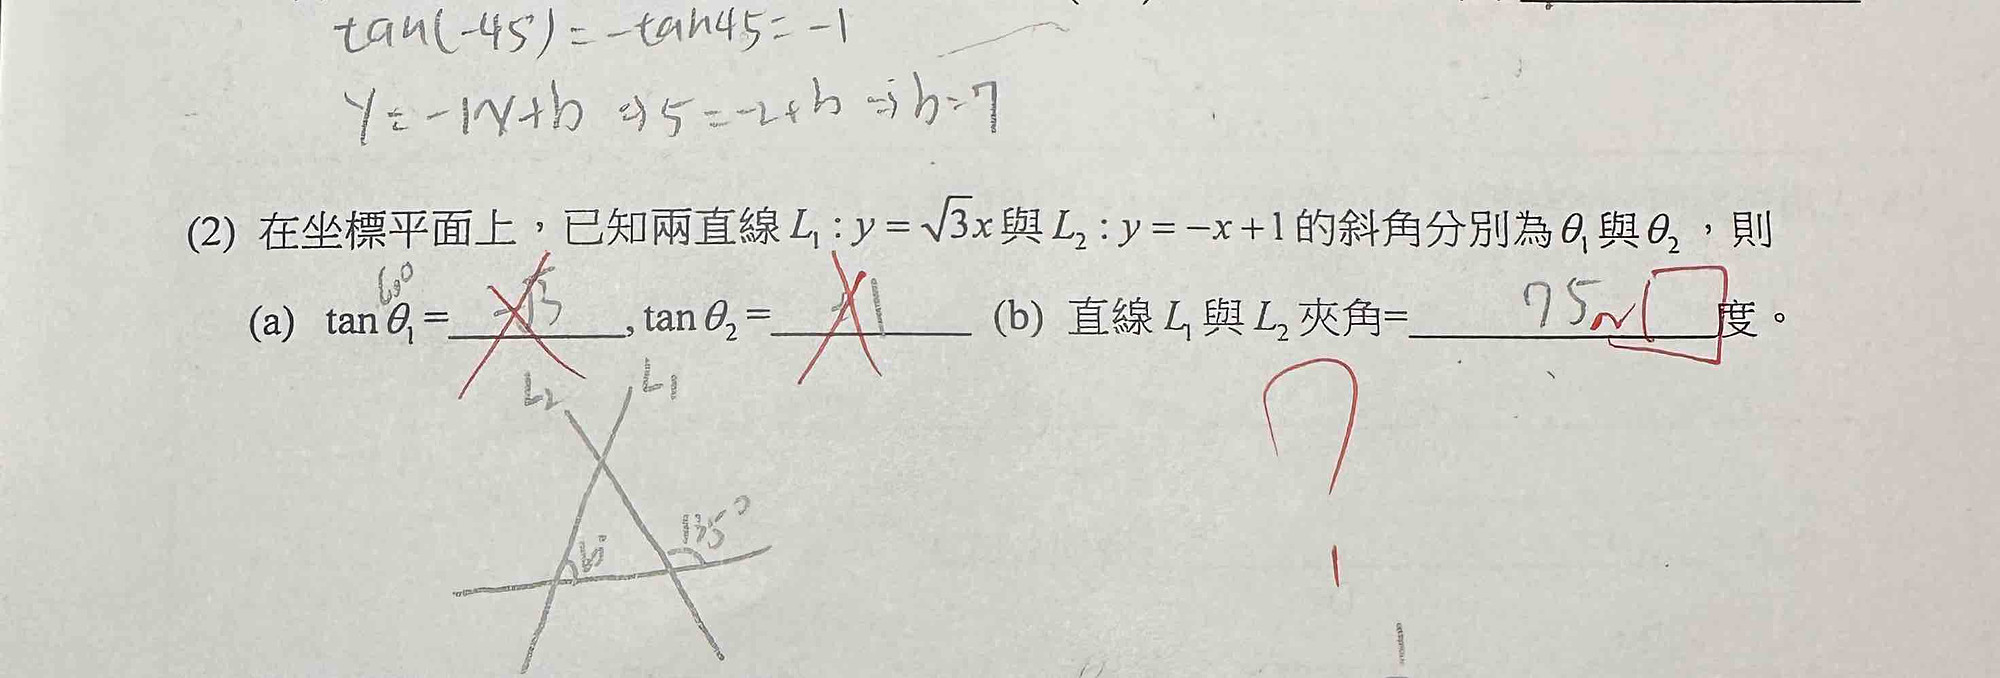 tan(-45°)=-tan45=-1
y=-1x+b⇒5=-2+b⇒b=7
(2) 在坐標平面上，已知兩直線 L₁ : y = √3x 與 L₂ : y = −x+1 的斜角分別為 θ₁ 與 θ₂ ，則
60°
(a) tan θ₁ = √3 , tan θ₂ = -1 (b) 直線 L₁ 與 L₂ 夾角= 75 度。
L₂ L₁
60 135°
?